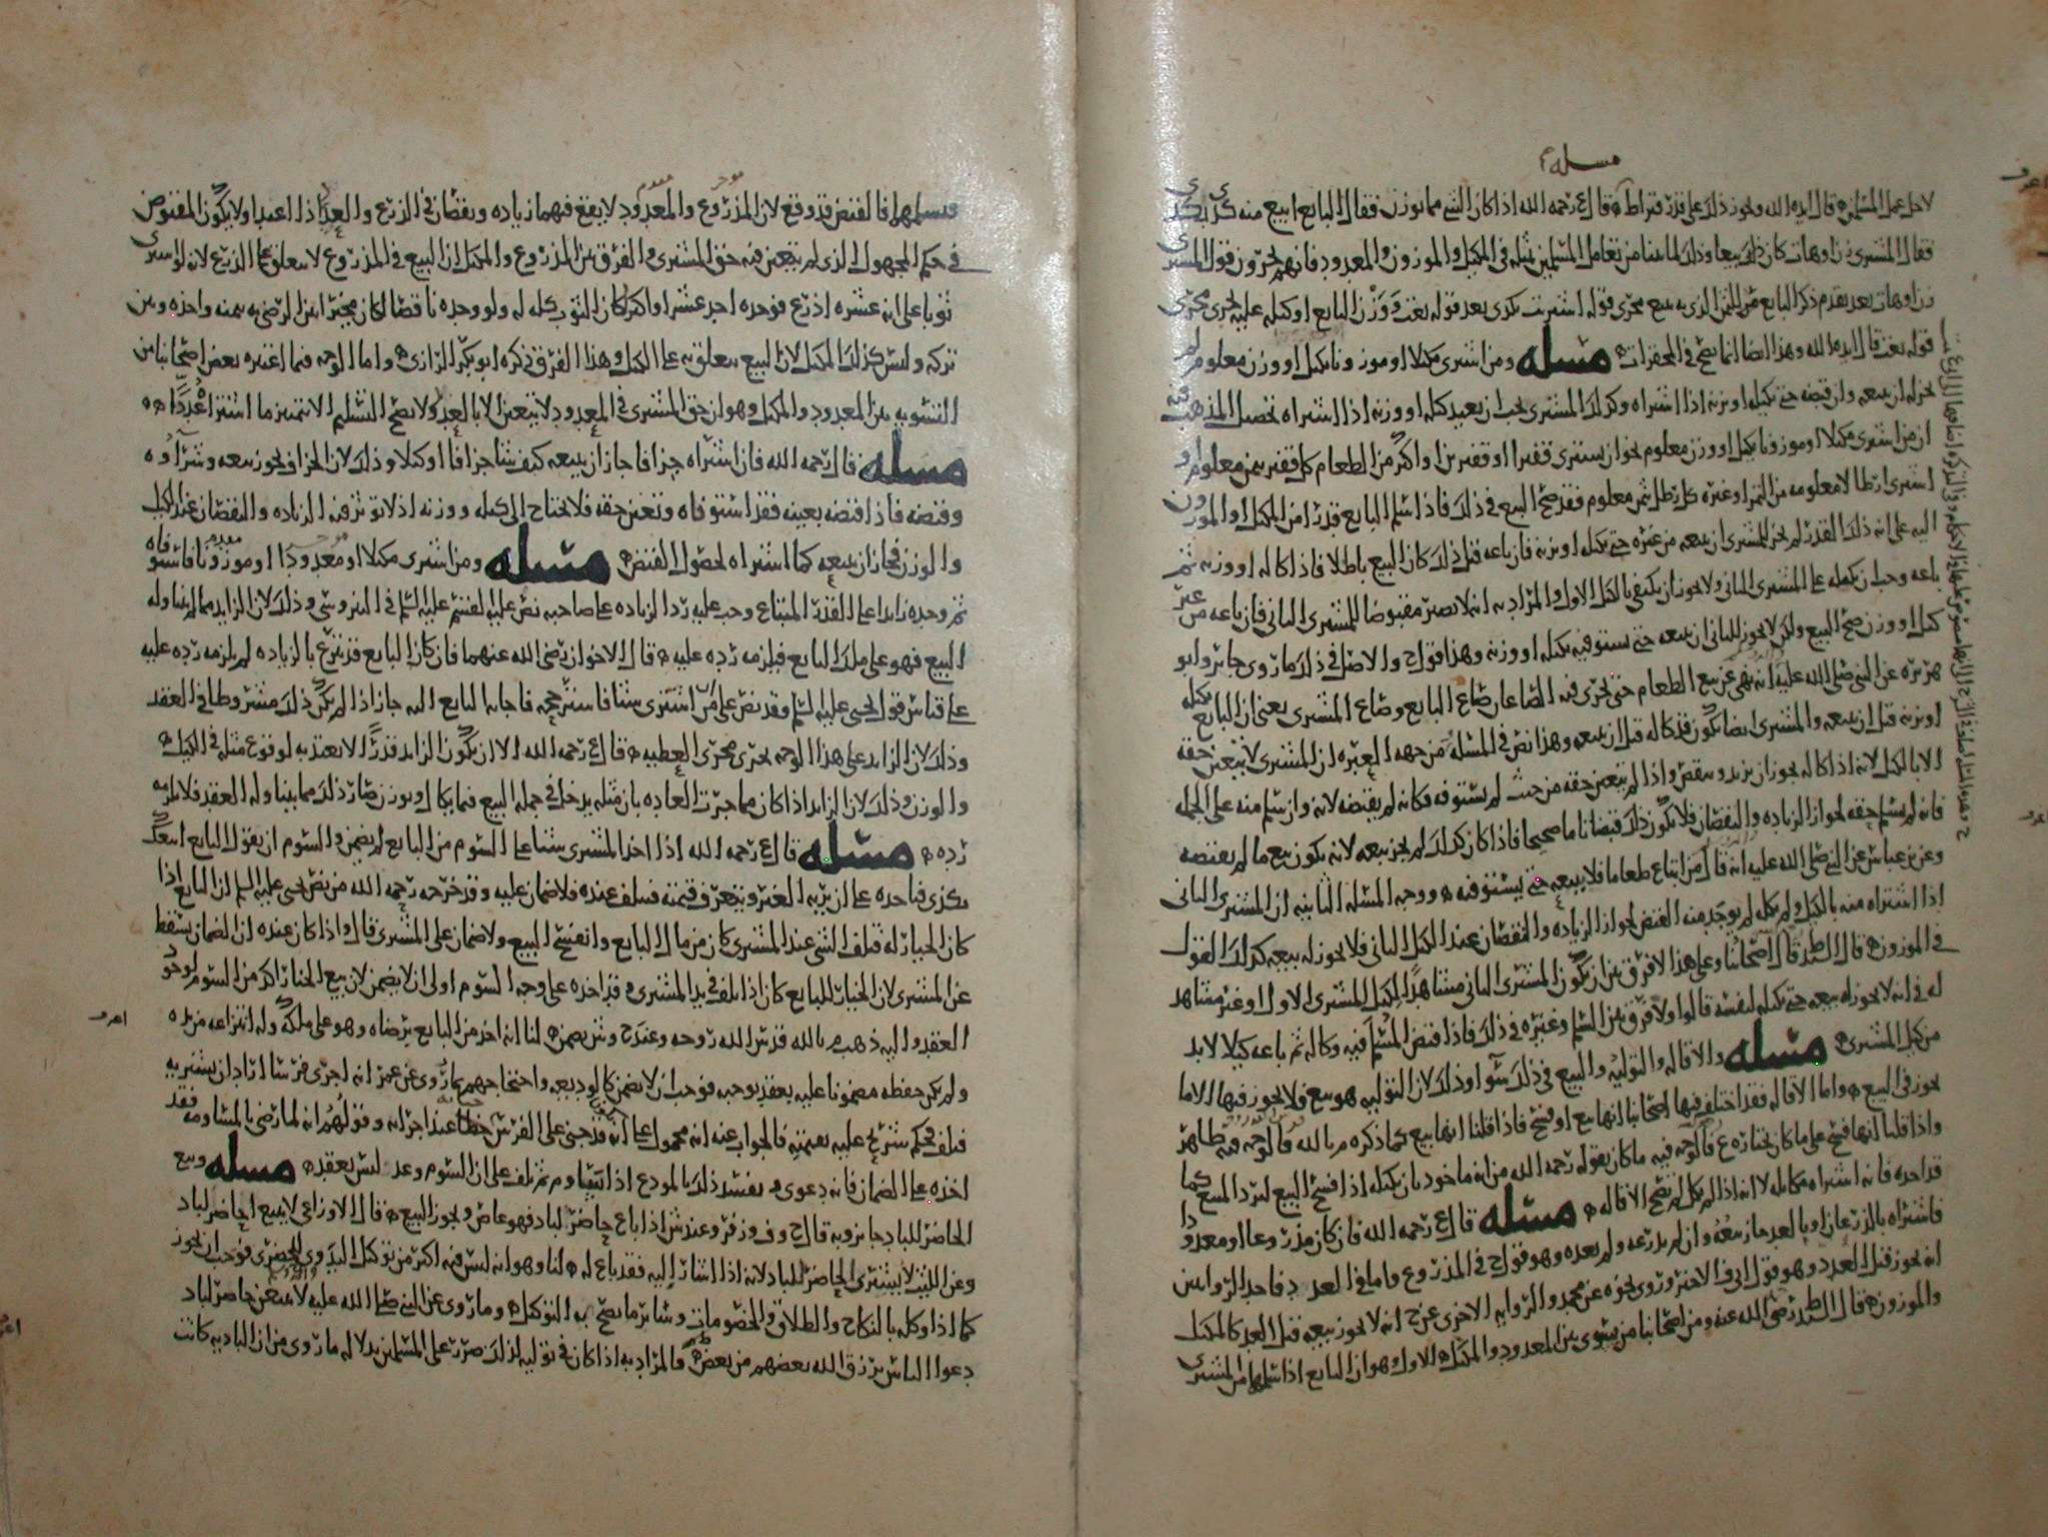 مسله
لاجل عمل المسلمين قال ايده الله ويجوز ذلك على قدر قيراط قال رحمه الله اذا كان الشي مما يوزن فقال البايع ابيع منه كذي بكذي
فقال المشتري زن او هات كان ذلك بيعا وذلك لما بينا من تعامل المسلمين بمثله في المكيل والموزون والمعدود فانهم يجرون قول المشتري
زن او هات بعد تقدم ذكر البايع من الثمن الذي به يبيع مجرى قوله اشتريت بكذي بعد قوله بعت ووزن البايع او كيله عليه يجري مجرى
قوله بعت قال ايده الله وهذا ايضا انما يصح في المحقرات مسله ومن اشترى مكيلا او موزونا بكيل او وزن معلوم لم
يجز له ان يبيعه وان قبضه حتى يكيله او يزنه اذا اشتراه وكذلك المشتري يجب ان يعيد كيله او وزنه اذا اشتراه تحصيل المذهب فيه
ان من اشترى مكيلا او موزونا بكيل او وزن معلوم نحو ان يشتري قفيزا او قفيزين او اكثر من الطعام كل قفيز بثمن معلوم او
اشترى ارطالا معلومه من التمر او غيره كل رطل بثمن معلوم فقد صح البيع في ذلك فاذا سلم البايع قدرا من المكيل او الموزون
اليه على انه ذلك القدر لم يجز للمشتري ان يبيعه من غيره حتى يكيله او يزنه فان باعه قبل ذلك كان البيع باطلا فاذا كاله او وزنه ثم
باعه وجب ان يكيله على المشتري الثاني ولا يجوز ان يكتفي بالكيل الاول والمراد به انه لا يصير مقبوضا للمشتري الثاني فان باعه من غير
كيل او وزن صح البيع ولكن لا يجوز للثاني ان يبيعه حتى يستوفيه بكيله او وزنه وهذا قول والاصل في ذلك ما روى جابر وابو
هريره عن النبي صلى الله عليه انه نهى عن بيع الطعام حتى يجري فيه الصاعان صاع البايع وصاع المشتري يعني ان البايع يكيله
او يزنه قبل ان يبيعه والمشتري ايضا يكون قد كاله قبل ان يبيعه وهذا نص في المسله ومن جهه العبره ان المشتري لا يتعين حقه
الا بالكيل لانه اذا كاله يجوز ان يزيد وينقص واذا لم يتعين حقه من حيث لم يستوفه فكانه لم يقبضه لانه وان سلم منه على الجمله
فانه لم يسلم حقه لجواز الزياده والنقصان فلا يكون ذلك قبضا تاما صحيحا فاذا كان كذلك لم يجز بيعه لانه يكون بيع ما لم يقبضه
وعن بن عباس عن النبي صلى الله عليه انه قال من ابتاع طعاما فلا يبيعه حتى يستوفيه ووجه المسله الثانيه ان المشتري الثاني
اذا اشتراه منه بالكيل ولم يكله لم يوجد منه القبض لجواز الزياده والنقصان عند الكيل الثاني فلا يجوز له بيعه كذلك القول
في الموزون قال السيد قال اصحابنا وعلى هذا لا فرق بين ان يكون المشتري الثاني مشاهدا لكيل المشتري الاول او غير مشاهد
له في انه لا يجوز له بيعه حتى يكيله لنفسه قالوا ولا فرق بين السلم وغيره في ذلك فاذا قبض المسلم فيه وكاله ثم باعه كيلا لابد
من كيل المشتري مسله والاقاله والتوليه والبيع في ذلك سوا وذلك لان التوليه هو بيع فلا يجوز فيها الا ما
يجوز في البيع واما الاقاله فقد اختلف فيها اصحابنا انها بيع او فسخ فاذا قلنا انها بيع كما ذكره م بالله فالوجه فيه ظاهر
واذا قلنا انها فسخ على ما كان يختاره ع فالوجه فيه ما كان يقوله رحمه الله من انه ماخوذ بان يكيله اذا فسخ البيع ليرد المبيع كما
قد اخذه فانه اشتراه مكايله لا انه اذا لم يكل لم تصح الاقاله مسله قال رحمه الله فان كان مذروعا او معدودا
فاشتراه بالزرع او بالعد جاز بيعه وان لم يذرعه ولم يعده وهو قول ح في المذروع واما في العد فاحد الروايتين
انه يجوز قبل العدد وهو قول ابي الاخير وروي نحوه عن محمد والروايه الاخرى عن ح انه لا يجوز بيعه قبل العد كالمكيل
والموزون قال السيد رضي الله عنه ومن اصحابنا من يسوي بين المعدود والمكيل الاول وهو ان البايع اذا سلمها من المشتري
فتسلمها فالقبض قد وقع لان المذروع والمعدود لا يقع فيهما زياده ونقصان في الذرع والعد اذا اعيدا ولا يكون المقبوض
في حكم المجهول الذي لم يتعين فيه حق المشتري والفرق بين المذروع والمكيل ان البيع في المذروع لا يتعلق بما الذرع لانه لو اشترى
ثوبا على انه عشره اذرع فوجده احد عشر او اكثر كان الثوب كله له ولو وجده ناقصا كان مخيرا بين الرضى به بثمنه واخذه وبين
تركه وليس كذلك المكيل لان البيع يتعلق به على الكيل وهذا الفرق ذكره ابو بكر الرازي واما الوجه فيما اعتبره بعض اصحابنا من
التسويه بين المعدود والمكيل وهو ان حق المشتري في المعدود لا يتعين الا بالعد ولا يصح التسليم الا بتمييز ما اشترا عددا
مسله قال رحمه الله فان اشتراه جزافا جاز ان يبيعه كيف شا جزافا او كيلا وذلك لان الجزاف يجوز بيعه وشراوه
وقبضه فاذا قبضه بعينه فقد استوفاه وتعين حقه فلا يحتاج الى كيله ووزنه اذ لا توثر فيه الزياده والنقصان عند الكيل
والوزن فجاز ان يبيعه كما اشتراه لحصول القبض مسله ومن اشترى مكيلا او معدودا او موزونا فاستوفاه
ثم وجده زايدا على القدر المبتاع وجب عليه رد الزياده على صاحبه نص عليه القسم عليه السلم في النيروسي وذلك لان الزايد مما لم يتناوله
البيع فهو على ملك البايع فيلزمه رده عليه قال الاخوان رضي الله عنهما فان كان البايع قد تبرع بالزياده لم يلزمه رده عليه
على قياس قول يحيى عليه السلم وقد نص على من اشترى شيا فاسترجحه فاجابه البايع اليه جاز اذا لم يكن ذلك مشروطا في العقد
وذلك لان الزايد على هذا الوجه يجري مجرى العطيه قال رحمه الله الا ان يكون الزايد قدرا لا يعتد به لوقوع مثله في الكيل
والوزن وذلك لان الزايد اذا كان مما جرت العاده بان مثله يدخل في جمله البيع فيما يكال ويوزن صار ذلك مما يتناوله العقد فلا يلزمه
رده مسله قال رحمه الله اذا اخذ المشتري شيا على السوم من البايع لم يضمن والسوم ان يقول البايع ابيعك
بكذي فياخذه على ان يريه الغير ويتعرف قيمته فيتلف عنده فلا ضمان عليه وقد خرجه رحمه الله من نص يحيى عليه السلم ان البايع اذا
كان الخيار له فتلف الشي عند المشتري كان من مال البايع وانفسخ البيع ولا ضمان على المشتري قال واذا كان عنده ان الضمان يسقط
عن المشتري لان الخيار للبايع كان اذا تلف في يد المشتري وقد اخذه على وجه السوم اولى ان لا يضمن لان بيع الخيار اكد من السوم لوجود
العقد واليه ذهب م بالله قدس الله روحه وعند ح وش يضمن لنا انه اخذ من البايع برضاه وهو على ملكه وله انتزاعه من يده
ولم يكن حفظه مضمونا عليه بعقد يوجبه فوجب ان لا يضمن كالوديعه واحتجاجهم بما روي عن عمر انه اجرى فرسا اراد ان يشتريه
فتلف فحكم شريح عليه بقيمته فالجواب عنه انه محمول على انه قد جنى على الفرس خطا عند اجرائه وقولهم انه لما رضي بالمساومه فقد
اخذه على الضمان فانه دعوى ويفسد ذلك بالمودع اذا تساوم ثم تلف على ان السوم وعد ليس بعقد مسله وبيع
الحاضر للباد جايز وبه قال ح وف وزفر وعند ش اذا باع حاضر لباد فهو عاص ويجوز البيع قال الاوزاعي لا يبيع حاضر لباد
وعن الليث لا يشتري الحاضر للباد لانه اذا اشار اليه فقد باع له لنا وهو انه ليس فيه اكثر من توكيل البدوي للحضري فوجب ان يجوز
كما اذا وكله بالنكاح والطلاق والخصومات وساير ما يصح به التوكيل وما روي عن النبي صلى الله عليه لا يبيعن حاضر لباد
دعوا الناس يرزق الله بعضهم من بعض فالمراد به اذا كان في توليه لذلك ضرر على المسلمين بدلاله ما روي من ان الباديه كانت